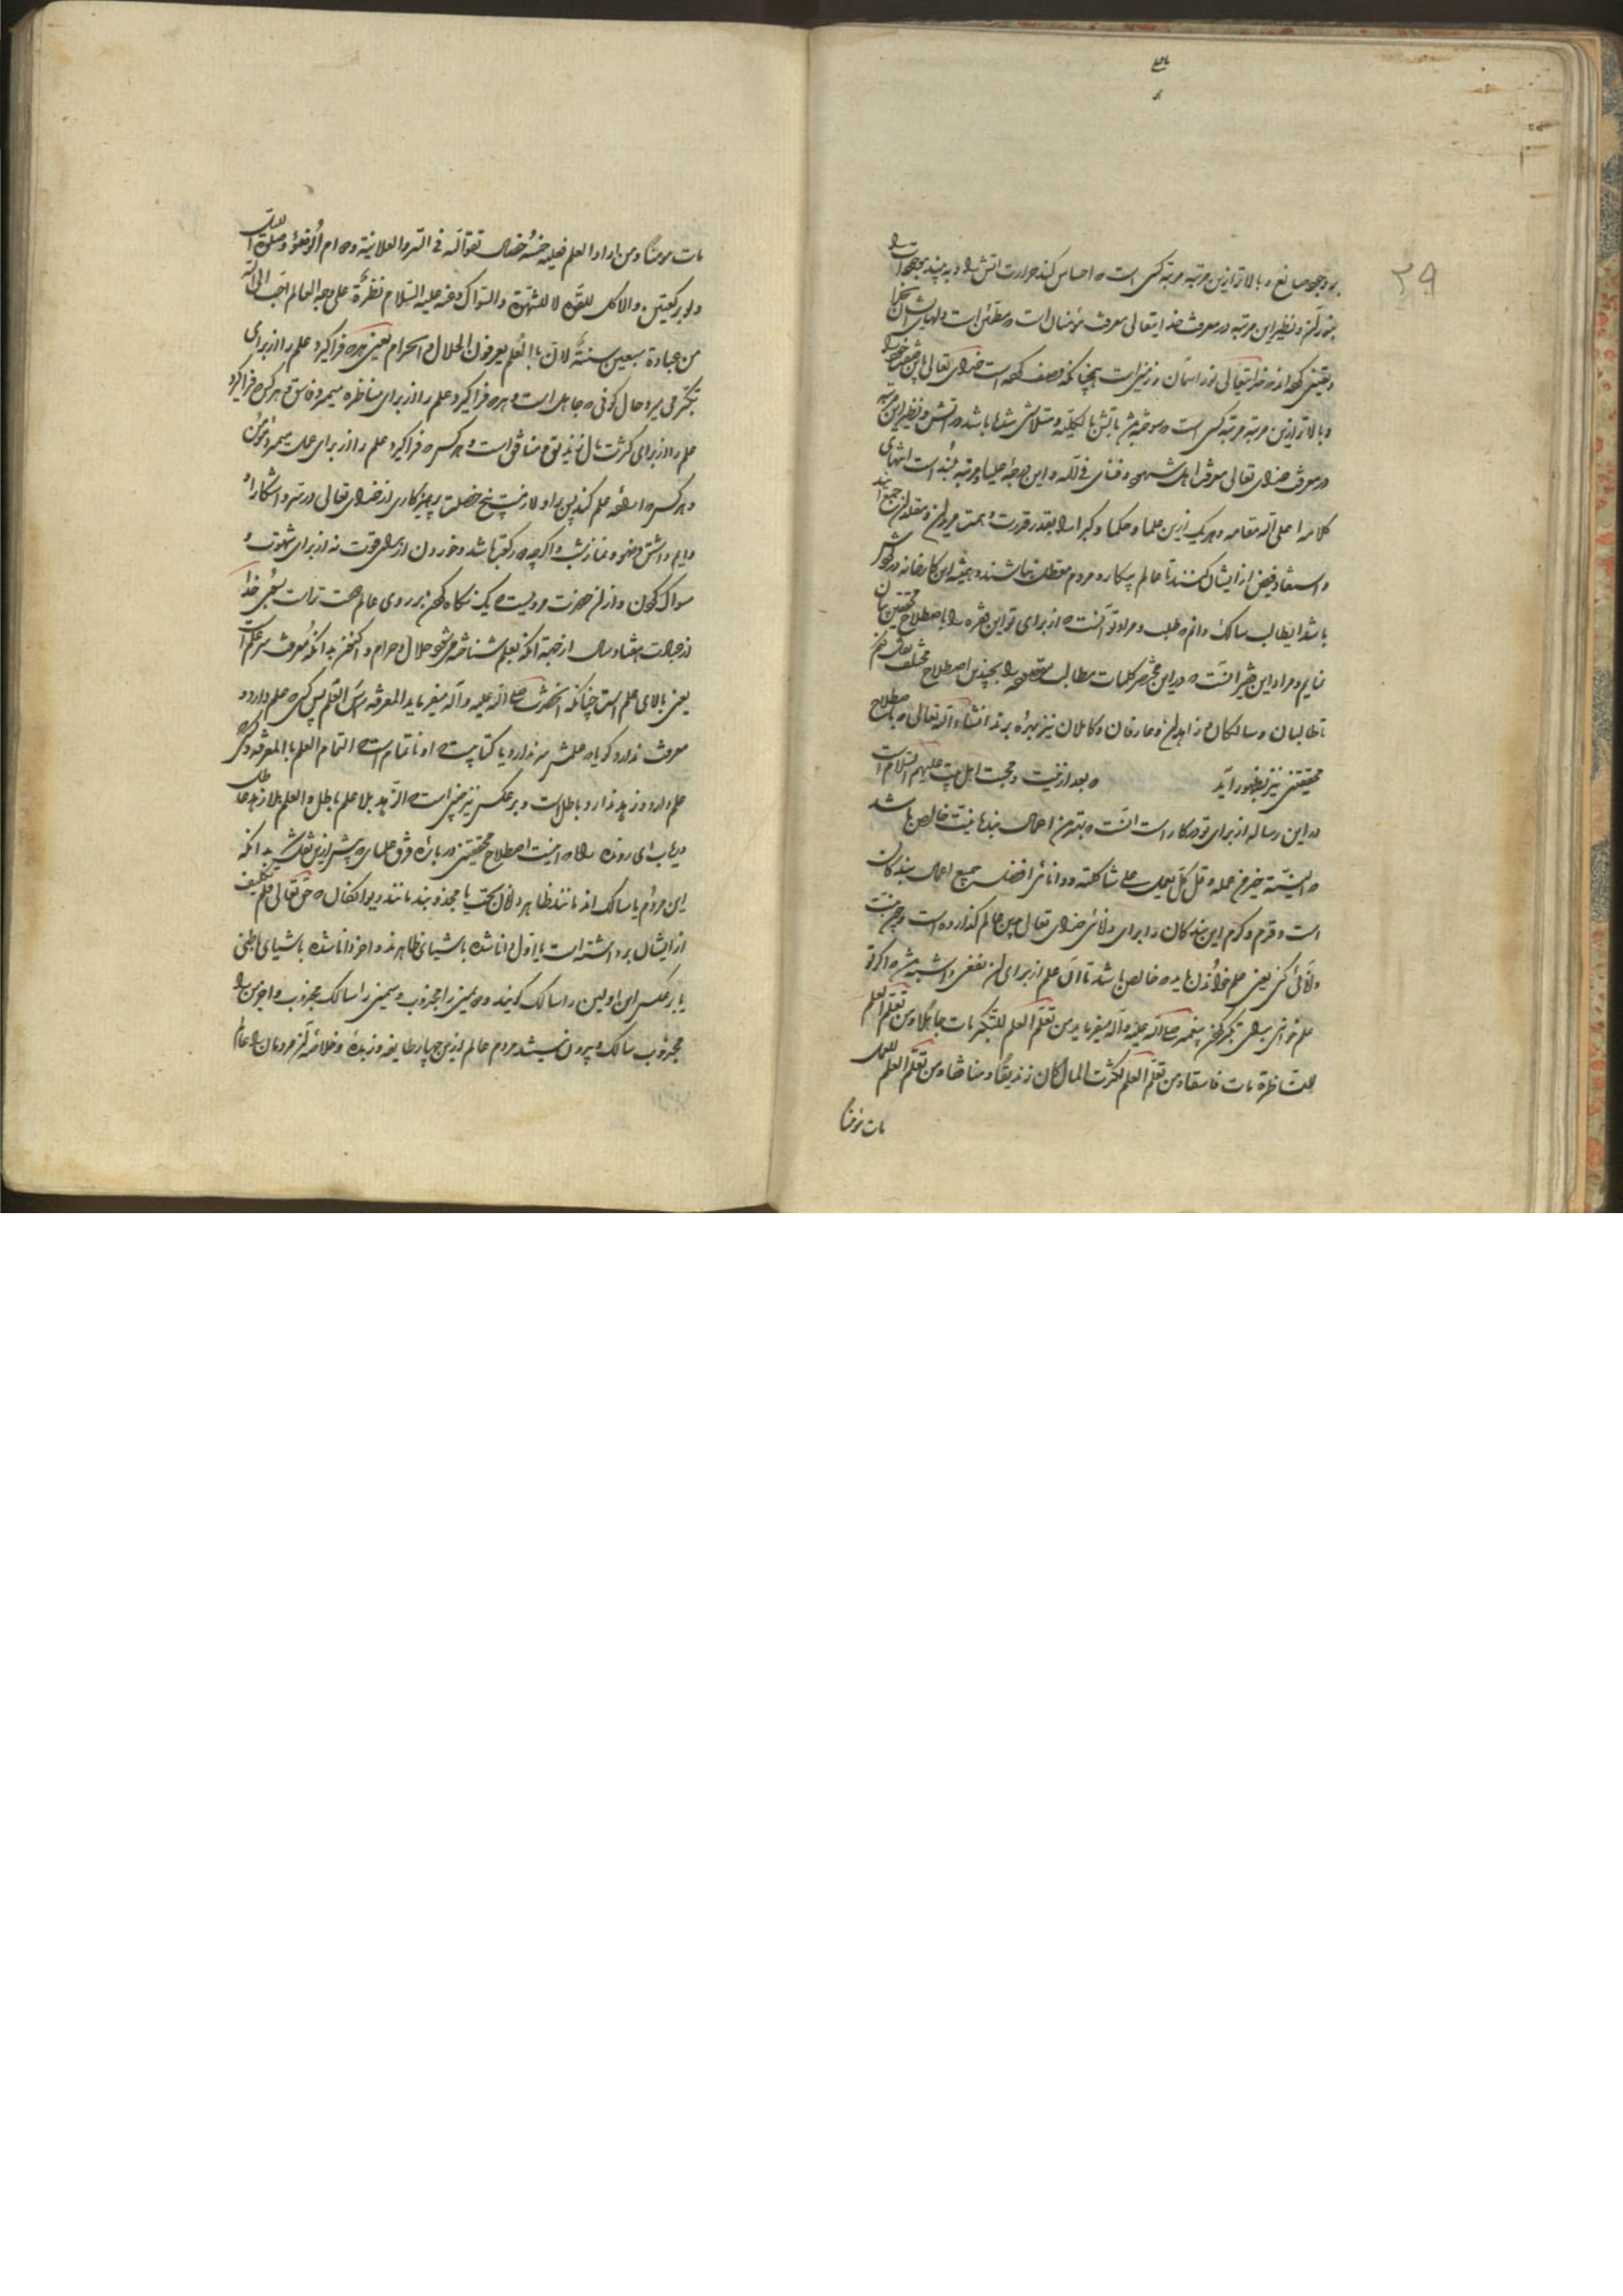 ۲۹
بر وجود صانع و بالاتر ازین مرتبه مرتبه کسی است که احساس کند حرارت آتش را و به بیند موجودات را
بنور آن و نظیر این مرتبه در معرفت خدایتعالی معرفت مؤمنان است که مطمئن است دلهای ایشان بخدا
و یقین کرده‌اند که خدایتعالی نور آسمان و زمین است همچنانکه وصف کرده است خدای تعالی باین صفت خود را
و بالاتر ازین مرتبه مرتبه کسی است که سوخته باتش بالکلیه و متلاشی شده باشد در آتش و نظیر این مرتبه
در معرفت خدای تعالی معرفت اهل شهود و فنای فی الله و این درجه علیا و مرتبه بلند است انتهای
کلامه اعلی الله مقامه و هر یک ازین علما و حکما و کبرا را بقدر قدرت و همت مریدان و مقلدان جمع آیند
و استفاد فیض از ایشان کنند تا عالم بیکار و مردم معطل نباشند و همیشه این کارخانه در گردش
باشد ایطالب سالک دانم که طلب و مراد تو آنست که از برای تو این فقره را باصطلاح محققین بیان
نمایم و مراد این فقیر آنست که در این مختصر کلمات مطالب را بچندین اصطلاح مختلف نقل کنم
تا طالبان و سالکان و زاهدان و عارفان و کاملان نیز بهره برند انشاء الله تعالی که باصطلاح
محققین نیز بظهور آید که بعد از نیت و محبت اهل بیت علیهم السلام است
در این رساله از برای تو در کار است آنست که بهترین اعمال بندها نیت خالص باشد
که النیة خیر من عمله و قل کل یعمل علی شاکلته و دانائی افضل جمیع اعمال بندکان
است و قرم و کرم این بندکان را برای دانائی خدای تعالی باین عالم گذارده است و چون نیت
دانائی کنی یعنی علم خواندن باید که خالص باشد تا آن علم از برای آن نفعی داشته باشد که اگر تو
علم خوانی برای تکبر کردن پیغمبر صلی الله علیه و آله میفرماید من تعلم العلم للتکبر مات جاهلا و من تعلم العلم
للمناظرة مات فاسقا و من تعلم العلم لکثرت المال کان زندیقا و منافقا و من تعلم العلم للعمل
مات مؤمنا
مات مومنا و من اراد العلم فعلیه خمسة خصال تقوالله فی السر والعلانیة و دوام الوضوء و صلوة اللیل
ولو برکعتین والاکل للقوة لا للشهوة والسواک و عنه علیه السلام نظرة علی وجه العالم احب الی الله
من عبادة سبعین سنة لان بالعلم یعرفون الحلال والحرام یعنی هر که فراگیرد علم را از برای
تکبر می میرد و حال کونی که جاهل است و هر که فراگیرد علم را از برای مناظره میمیرد فاسق و هر کس که فراگیرد
علم را از برای کثرت مال زندیق و منافق است و هر کس که فراگیرد علم را از برای عمل میمیرد مؤمن
و هر کس که اراده علم کند پس بر او لازمست پنج خصلت پرهیزکاری از خدای تعالی در سر و آشکارا و
دایم داشتن وضو و نماز شب و اگرچه دو رکعت باشد و خوردن از برای قوت نه از برای شهوت و
سواک کردن و از آن حضرت مرویست که یک نگاه کردن بر روی عالم دوست تر است بسوی خدا
از عبادت هفتاد سال از جهة آنکه بعلم شناخته میشود حلال و حرام و بدانکه معرفت سر علم است
یعنی بالای علم است چنانکه آنحضرت صلی الله علیه و آله میفرماید المعرفة راس العلم پس کسی که علم دارد و
معرفت ندارد گویا که علمش سر ندارد یا کتابیست که او ناتمام است که اتمام العلم بالمعرفة و کسی که
علم دارد و زهد ندارد باطل است و بر عکس نیز چنین است که الزهد بلا علم باطل و العلم بلا زهد عاطل
دریاب ای رونده راه که اینست اصطلاح محققین در باره فرق علمای که پیش ازین نقل شد بدانکه
این مردم یا سالک اند مانند ظاهر دانان بحت یا مجذوبند مانند دیوانگان که حق تعالی قلم تکلیف
از ایشان برداشته است یا اول دانا شده باشیای ظاهرند و آخر دانا شده باشیای باطن
یا برعکس این اولین را سالک گویند و دومین را مجذوب و سیمین را سالک مجذوب و آخرین را
مجذوب سالک و بیرون نیستند مردم عالم ازین چهار طایفه و زبده و خلاصه آن مردمان